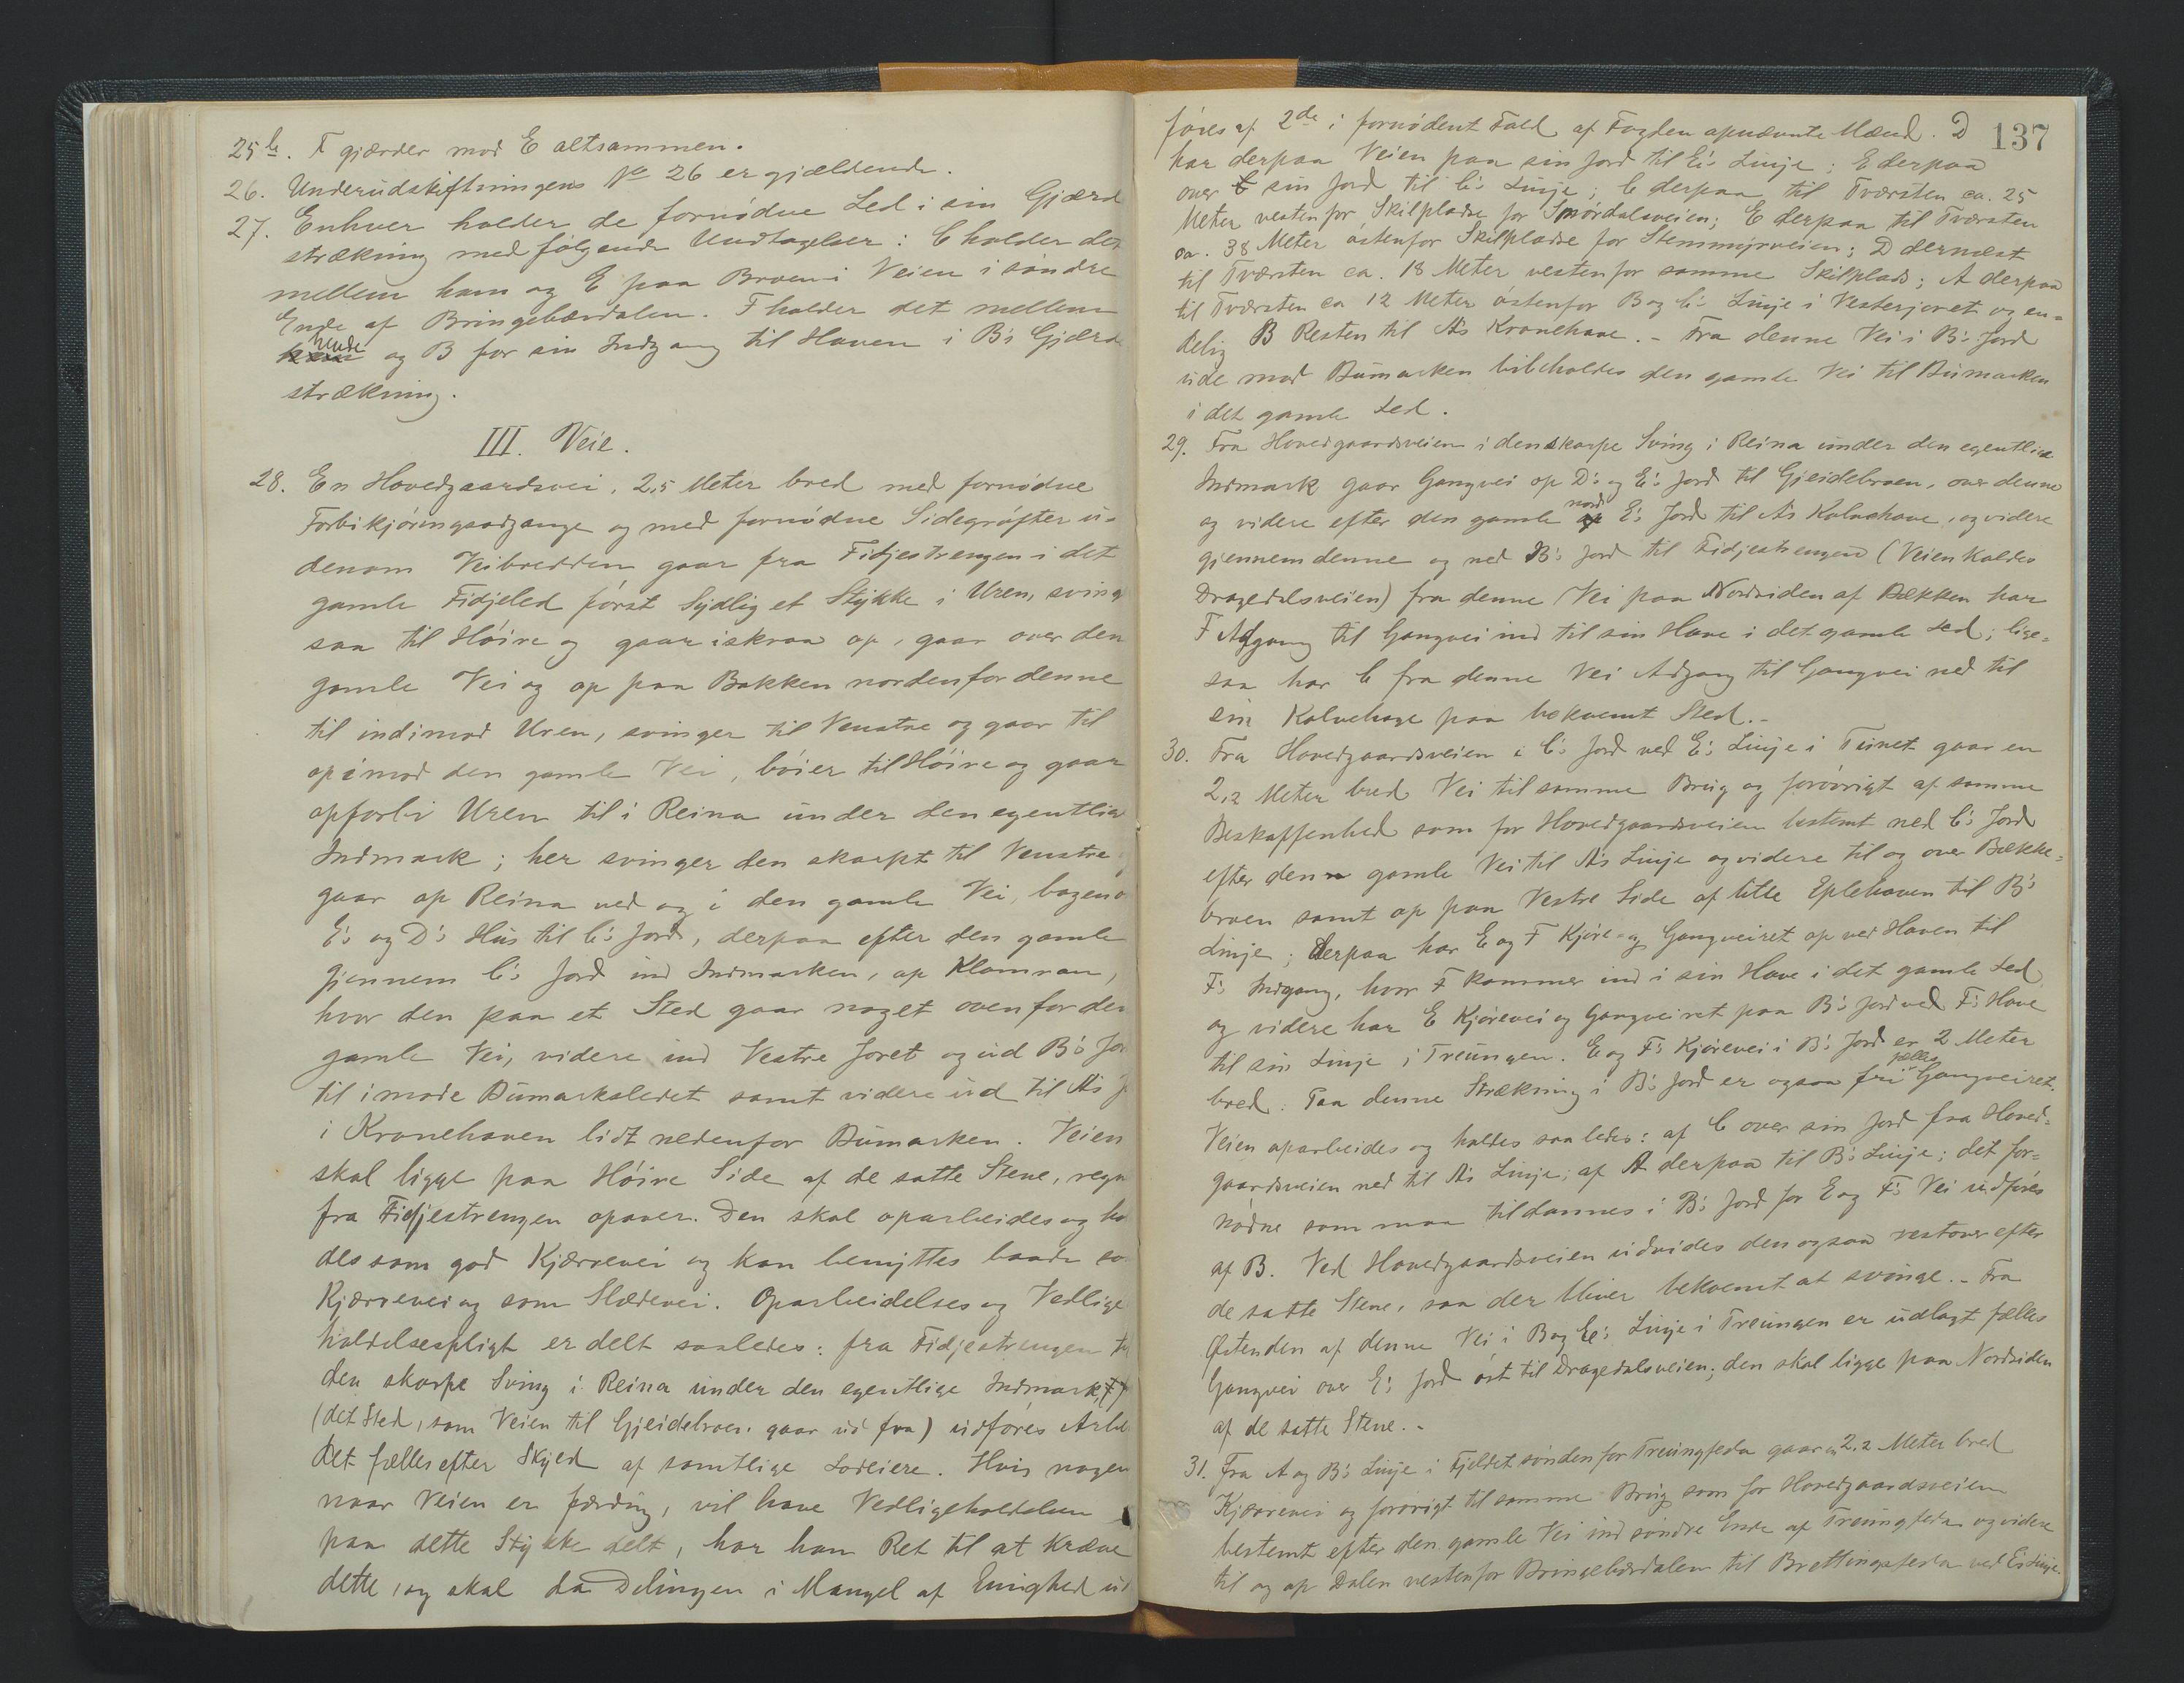 25 b. F gjærder mod E altsammen.
26. Underudskiftningens № 26 er gjældende.
27. Enhver holder de fornødne Led i sin Gjærd
strækning med følgende Undtagelser: C holder det
mellem ham og E paa Broen i Veien i søndre
Ende af Bringebærdalen. F holder det mellem
hende og B for sin Indgang til Haven i B's Gjærde
strækning.
III. Veie.
28. En Hovedgaardsvei, 2,5 Meter bred med fornødne
Forbikjøringsadgange og med fornødne Sidegrøfter u-
denom Veibredden gaar fra Fidjestrengen i det
gamle Fidjeled først Sydlig et Stykke i Uren, sving
saa til Høire og gaar iskraa op, gaar over den
gamle Vei og op paa Bakken nordenfor denne
til indimod Uren, svinger til Venstre og gaar til
opimod den gamle Vei, bøier til Høire og gaar
opforbi Uren til i Reina under den egentlige
Indmark; her svinger den skarpt til Venstre
gaar op Reina ved og i den gamle Vei, bagenom
E's og D's Hus til C's Jord, derpaa efter den gamle
gjennem C's Jord ind Indmarken, op Klamran,
hvor den paa et Sted gaar noget ovenfor den
gamle Vei, videre ind Vestre Joret og ud B's Jor
til imode Bumarksledet samt videre ud til A's J
i Kronehaven lidt nedenfor Bumarken. Veien
skal ligge paa Høire Side af de satte Stene, regn
fra Fidjestrengen opover. Den skal oparbeides og hol
des som god Kjærrevei og kan benyttes baade so
Kjærrevei og som Slædevei. Oparbeidelses og Vedlige
holdelsespligt er delt saaledes: fra Fidjestrengen til
den skarpe Sving i Reina under den egentlige Indmark,
(det Sted, som Veien til Gjeidebroen gaar ud fra) udføres Arbei
det fælles efter Skyld af samtlige Lodeiere. Hvis nogen
naar Veien er færdig, vil have Vedligeholdelsen
paa dette Stykke delt, har han Ret til at kræve
dette, og skal da Delingen i Mangel af Enighed ud
137
føres af 2de i fornødent Fald af Fogden opnævnte Mænd. D
har derpaa Veien paa sin Jord til E's Linje; E derpaa
over sin Jord til C's Linje; C derpaa til Tværsten ca. 25
Meter vestenfor Skilpladse for Smørdalsveien; E derpaa til Tværsten
ca. 38 Meter østenfor Skilpladse for Stemmyrveien; D dernæst
til Tværsten ca. 18 Meter vestenfor samme Skilplads; A derpaa
til Tværsten ca 12 Meter østenfor B og C's Linje i Vesterjoret og en=
delig B Resten til A's Kronehave. - Fra denne Vei i B's Jord
ude mod Bumarken bibeholdes den gamle Vei til Bumarken
i det gamle Led.
29. Fra Hovedgaardsveien i den skarpe Sving i Reina under den egentlige
Indmark gaar Gangvei op D's og E's Jord til Gjeidebroen, over denne
og videre efter den gamle nord E's Jord til A's Kalvehave, og videre
gjennem denne og ned B's Jord til Fidjestrengen (Veien kaldes
Dragedalsveien) fra denne Vei paa Nordsiden af Bækken har
F Adgang til Gangvei ind til sin Have i det gamle Led; lige=
saa har C fra denne Vei Adgang til Gangvei ned til
sin Kalvehage paa bekvemt Sted. -
30. Fra Hovedgaardsveien i C's Jord ved E's Linje i Tunet gaar en
2,2 Meter bred Vei til samme Brug og forøvrigt af samme
Beskaffenhed som for Hovedgaardsveien bestemt ned C's Jord
efter den gamle Vei til A's Linje og videre til og over Bække=
broen samt op paa Vestre Side af litle Eplehaven til B's
Linje; derpaa har E og F Kjøre= og Gangveiret op ved Haven til
F's Indgang, hvor F kommer ind i sin Have i det gamle Led
og videre har E Kjørevei og Gangveiret paa B's Jord ved F's Have
til sin Linje i Treungen. E og F's Kjørevei i B's Jord er 2 Meter
bred. Paa denne Strækning i B's Jord er ogsaa fri fælles Gangveiret.
Veien oparbeides og holdes saaledes: af C over sin Jord fra Hoved=
gaardsveien ned til A's Linje; af A derpaa til B's Linje; det for=
nødne som maa tildannes i B's Jord for E og F's Vei udføres
af B. Ved Hovedgaardsveien udvides den ogsaa vestover efter
de satte Stene, saa der bliver bekvemt at svinge. - Fra
Østenden af denne Vei i B og E's Linje i Treungen er udlagt fælles
Gangvei over E's Jord øst til Dragedalsveien; den skal ligge paa Nordsiden
af de satte Stene. -
31. Fra A og B's Linje i Fjeldet søndenfor Treungfeda gaar en 2,2 Meter bred
Kjærrevei og forøvrigt til samme Brug som for Hovedgaardsveien
bestemt efter den gamle Vei ind søndre Ende af Treungfeda og videre
til og op Dalen vestenfor Bringebærdalen til Brattingsfeda ved E's Linje.